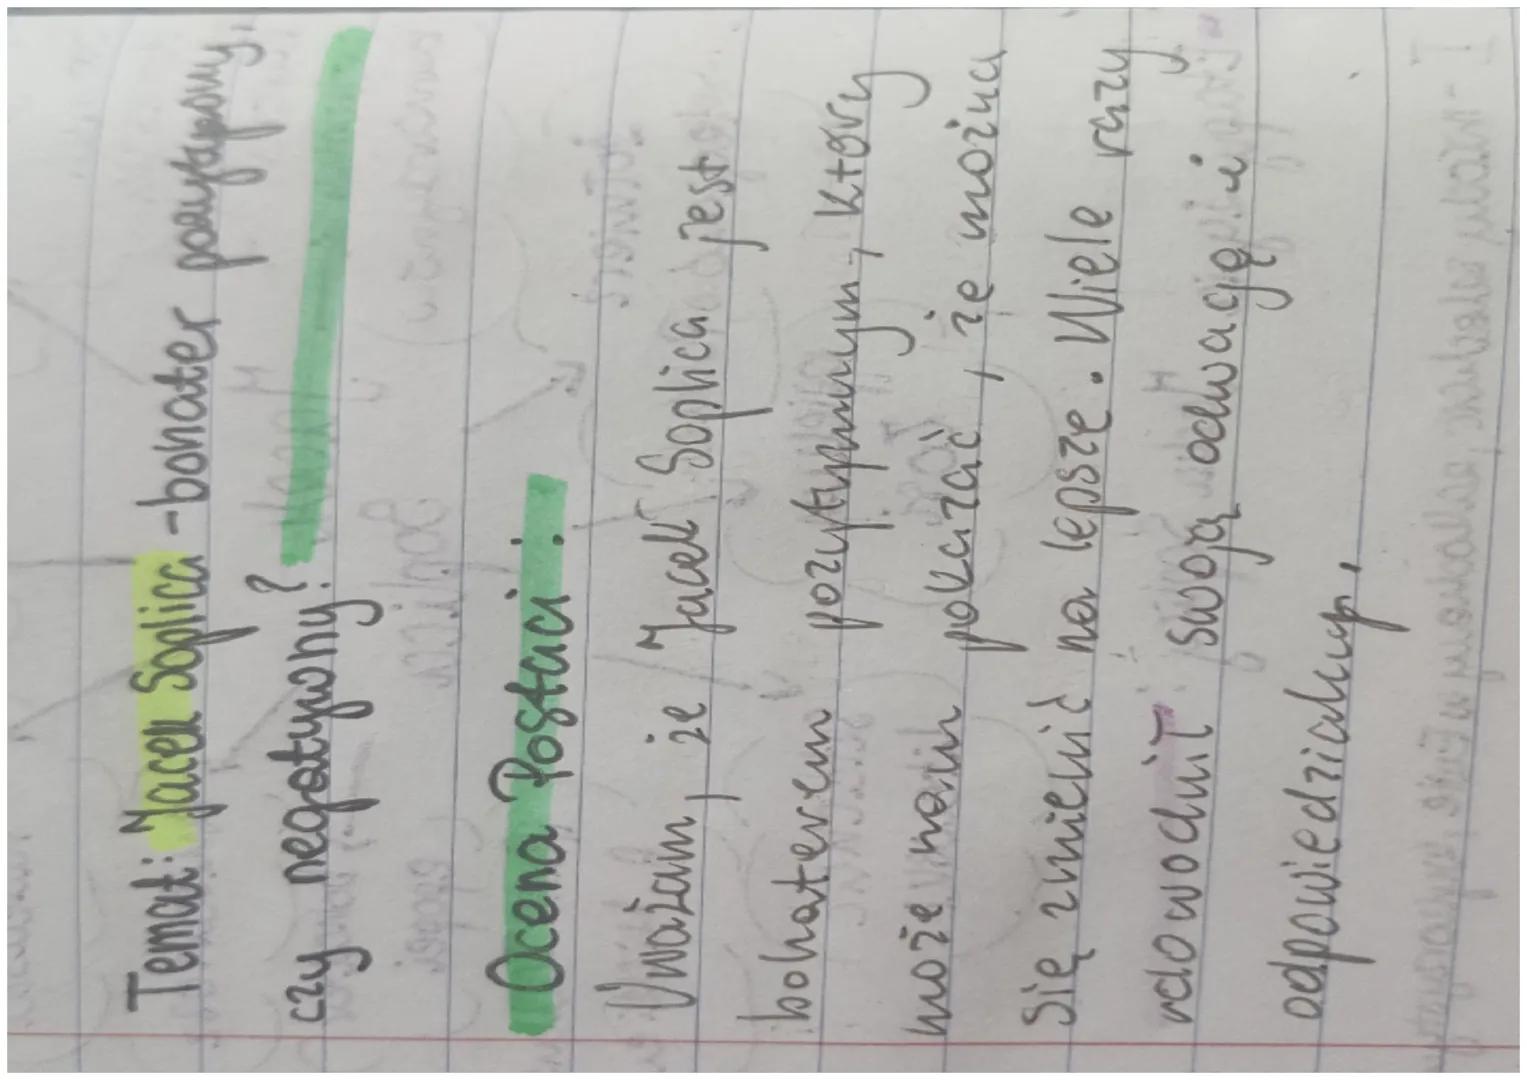 Temat: Jacek Soplica - bohater pozytywny,
czy negatywny?
Ocena Postaci:
Uważam, że Jacek Soplica jest
bohaterem pozytywnym, który
może nam pokazać, że można
się zmienić na lepsze. Wiele razy
udowodnił swoją odwagę i
odpowiedzialny.